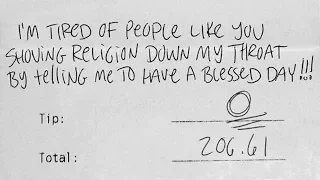 I'M TIRED OF PEOPLE LIKE YOU
SHOVING RELIGION DOWN MY THROAT
BY tElliNG ME TO HAVE A BLESSED DAY!!!
Tip: 0
Total: 206.61